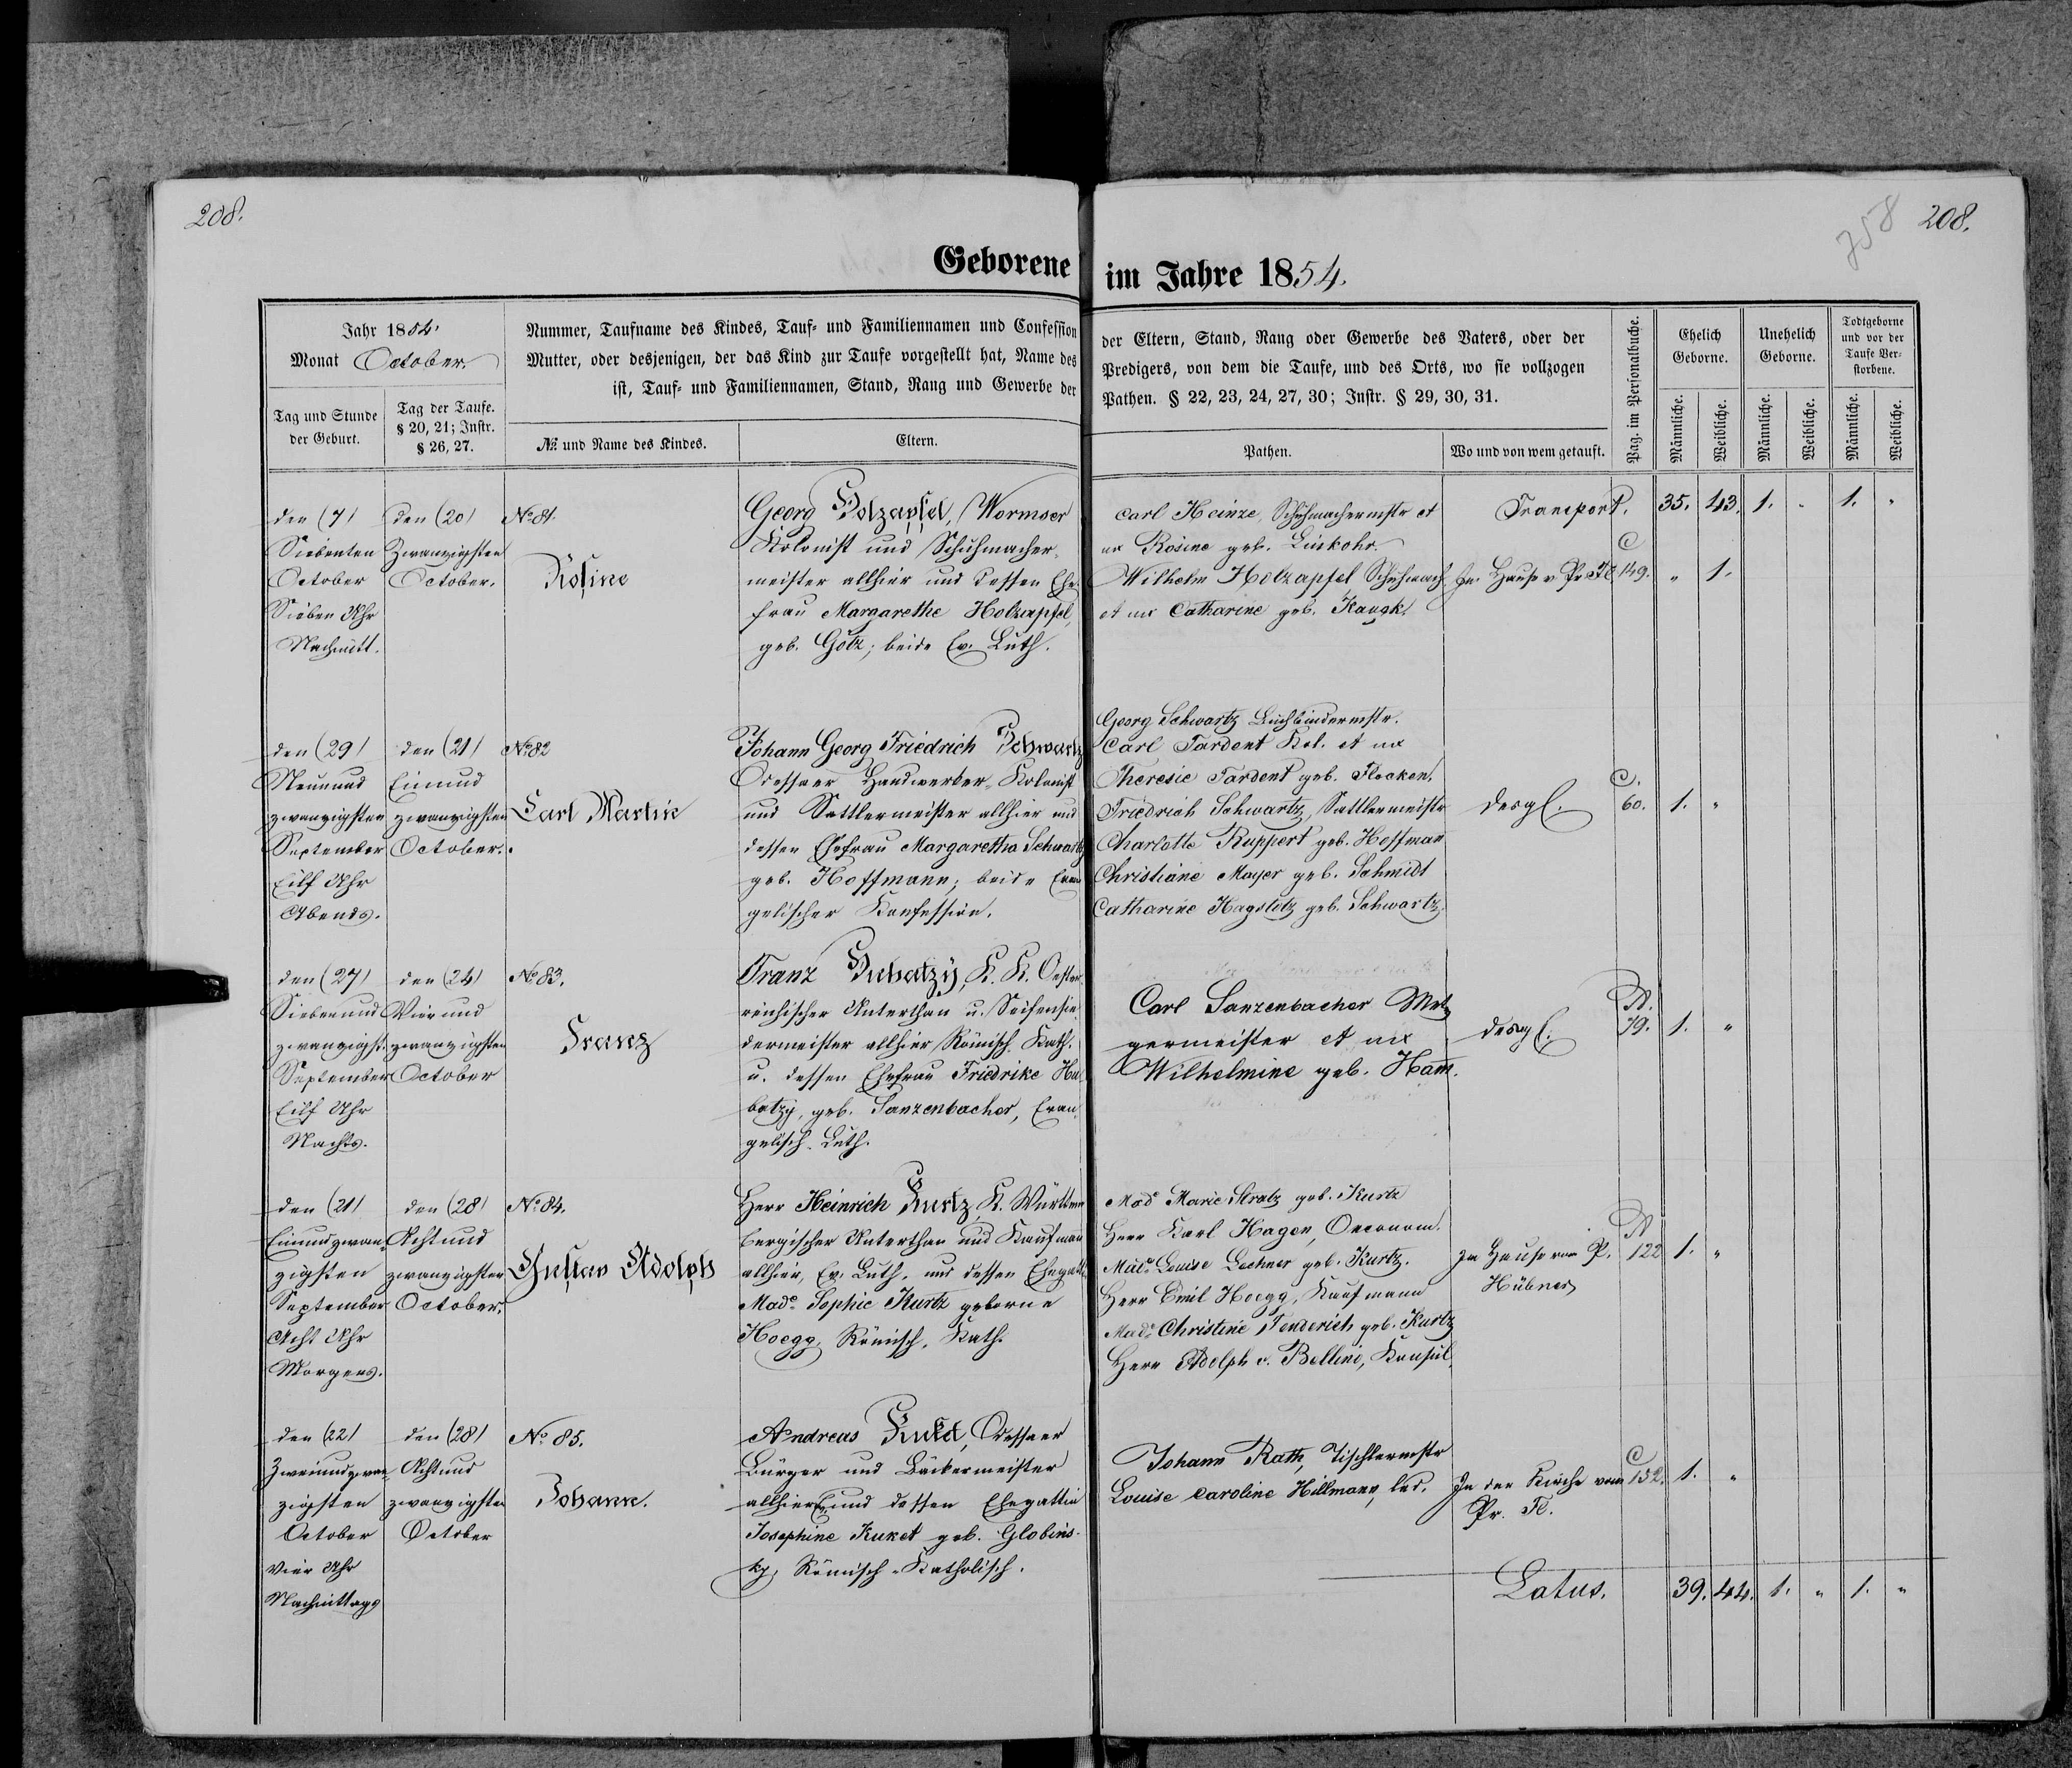 208.
758
208.
Geborene im Jahre 1854.
Jahr 1854.
Monat October.
Tag und Stunde
der Geburt.
Tag der Taufe.
§ 20, 21; Instr.
§ 26, 27.
Nummer, Taufname des Kindes, Tauf- und Familiennamen und Confession
der Eltern, Stand, Rang oder Gewerbe des Vaters, oder der
Mutter, oder desjenigen, der das Kind zur Taufe vorgestellt hat, Name des
Predigers, von dem die Taufe, und des Orts, wo sie vollzogen
ist, Tauf- und Familiennamen, Stand, Rang und Gewerbe der
Pathen. § 22, 23, 24, 27, 30; Instr. § 29, 30, 31.
№ und Name des Kindes.
Eltern.
Pathen.
Wo und von wem getauft.
Pag. im Personalbuche.
Ehelich
Geborne.
Unehelich
Geborne.
Todtgeborne
und vor der
Taufe Ver-
storbene.
Männliche.
Weibliche.
Männliche.
Weibliche.
Männliche.
Weibliche.
Transport. 35. 43. 1. „ 1. „
den (7)
Siebenten
October
Sieben Uhr
Nachmitt.
den (20)
Zwanzigsten
October.
No 81.
Rosine
Georg Holzapfel, Wormser
Kolonist und Schuhmacher-
meister allhier und dessen Ehe-
frau Margarethe Holzapfel,
geb. Götz; beide Ev. Luth.
Carl Heinze, Schuhmachermstr et
ux Rosine geb. Linkohr.
Wilhelm Holzapfel Schuhmach
et ux Catharine geb. Kaugk.
Im Hause v. Pr. Fl.
C
149. „ 1.
den (29)
Neunund
zwanzigsten
September
Eilf Uhr
Abends.
den (21)
Einund
zwanzigsten
October.
No 82
Carl Martin
Johann Georg Friedrich Schwartz
Odessaer Handwerker-Kolonist
und Sattlermeister allhier und
dessen Ehefrau Margaretha Schwartz
geb. Hoffmann; beide Evan
gelischer Konfession.
Georg Schwartz Buchbindermstr.
Carl Tardent Kol. et ux
Theresie Tardent geb. Flocken.
Friedrich Schwartz, Sattlermeistr
Charlotte Ruppert geb. Hoffman
Christiane Mayer geb. Schmidt
Catharine Hagstotz geb. Schwartz.
desgl.
C.
60. 1. „
den (27)
Siebenund
zwanzigst.
September
Eilf Uhr
Nachts.
den (24)
Vierund
zwanzigsten
October
No 83.
Franz
Franz Hubatzy, K. K. Oester
reichischer Unterthan u. Seifensie
dermeister allhier, Römisch Kath.
u. dessen Ehefrau Friedrike Hu
batzy, geb. Sanzenbacher, Evan
gelisch-Luth.
Carl Sanzenbacher Metz
germeister et ux
Wilhelmine geb. Ham.
desgl.
A.
79. 1. „
den (21)
Einundzwan
zigsten
September
Acht Uhr
Morgens.
den (28)
Achtund
zwanzigsten
October.
No 84.
Gustav Adolph
Herr Heinrich Kurtz, K. Württem
bergischer Unterthan und Kaufmann
allhier, Ev. Luth. und dessen Ehegatt.
Made Sophie Kurtz geborne
Hoegg, Römisch. Kath.
Made Marie Stratz geb. Kurtz
Herr Karl Hagen, Oeconom.
Made Louise Lochner geb. Kurtz.
Herr Emil Hoegg, Kaufmann
Made Christine Tenderich geb. Kurtz
Herr Adolph v. Bellino, Konsul
Im Hause vom P.
Hübner
A
122 1. „
den (22)
Zweiundzwan
zigsten
October
Vier Uhr
Nachmittags
den (28)
Achtund
zwanzigsten
October
No 85.
Johann.
Andreas Kuket, Odessaer
Bürger und Bäckermeister
allhier und dessen Ehegattin
Josephine Kuket geb. Globins-
ky, Römisch-Katholisch.
Johann Rath, Tischlermstr
Louise Caroline Hillmann, led.
In der Kirche vom
Pr. Fl.
C
152. 1. „
Latus. 39. 44. 1. „ 1. „